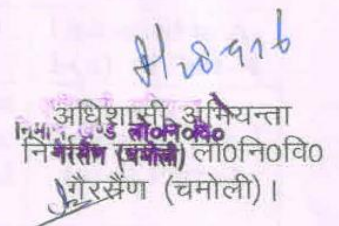 अधिशासी अभियन्ता
निर्माण खण्ड लो०नि०वि०
गैरसैंण (चमोली)
लो०नि०वि०
गैरसैंण (चमोली)।